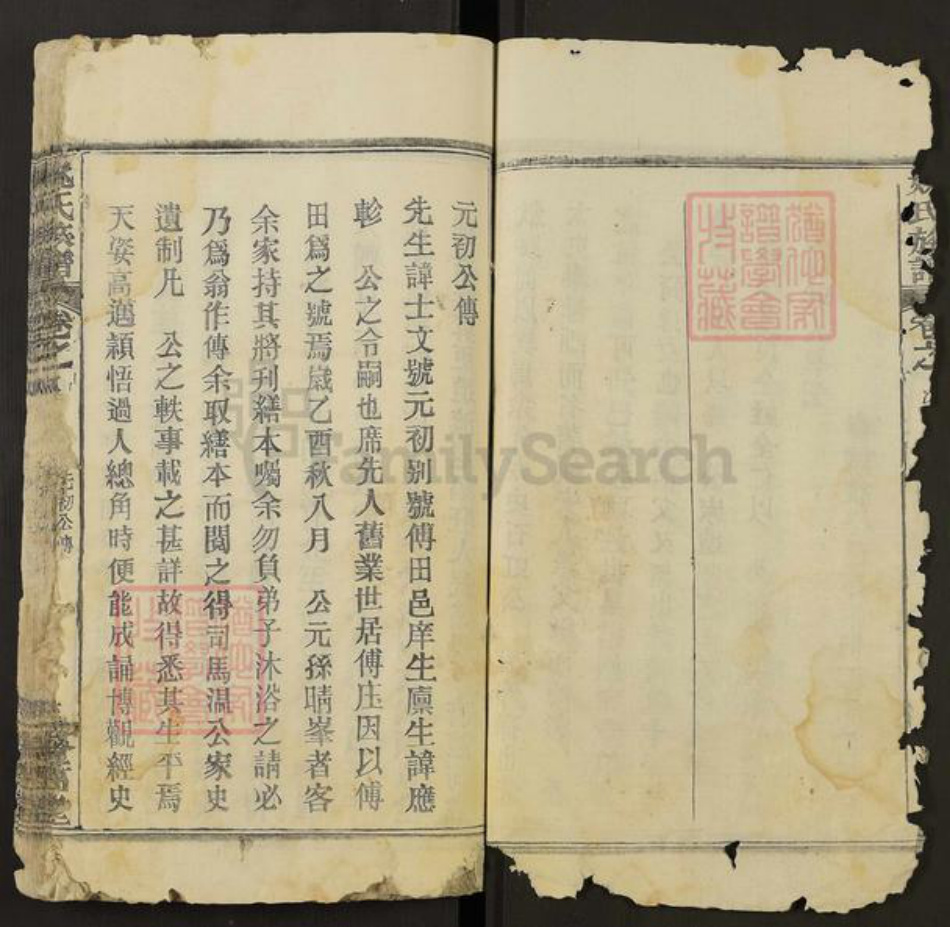 元初公傳
先生諱士文號元初別號傅田邑庠生廩生諱應
軫 公之令嗣也席先人舊業世居傅庄因以傅
田爲之號焉歲乙酉秋八月 公元孫晴峯者客
余家持其將刋繕本囑余勿負弟子沐浴之請必
乃爲翁作傳余取繕本而閱之得司馬溫公家史
遺制凡 公之軼事載之甚詳故得悉其生平焉
天姿高邁穎悟過人總角時便能成誦博觀經史
氏族譜 卷之
元初公傳
氏族
FamilySearch